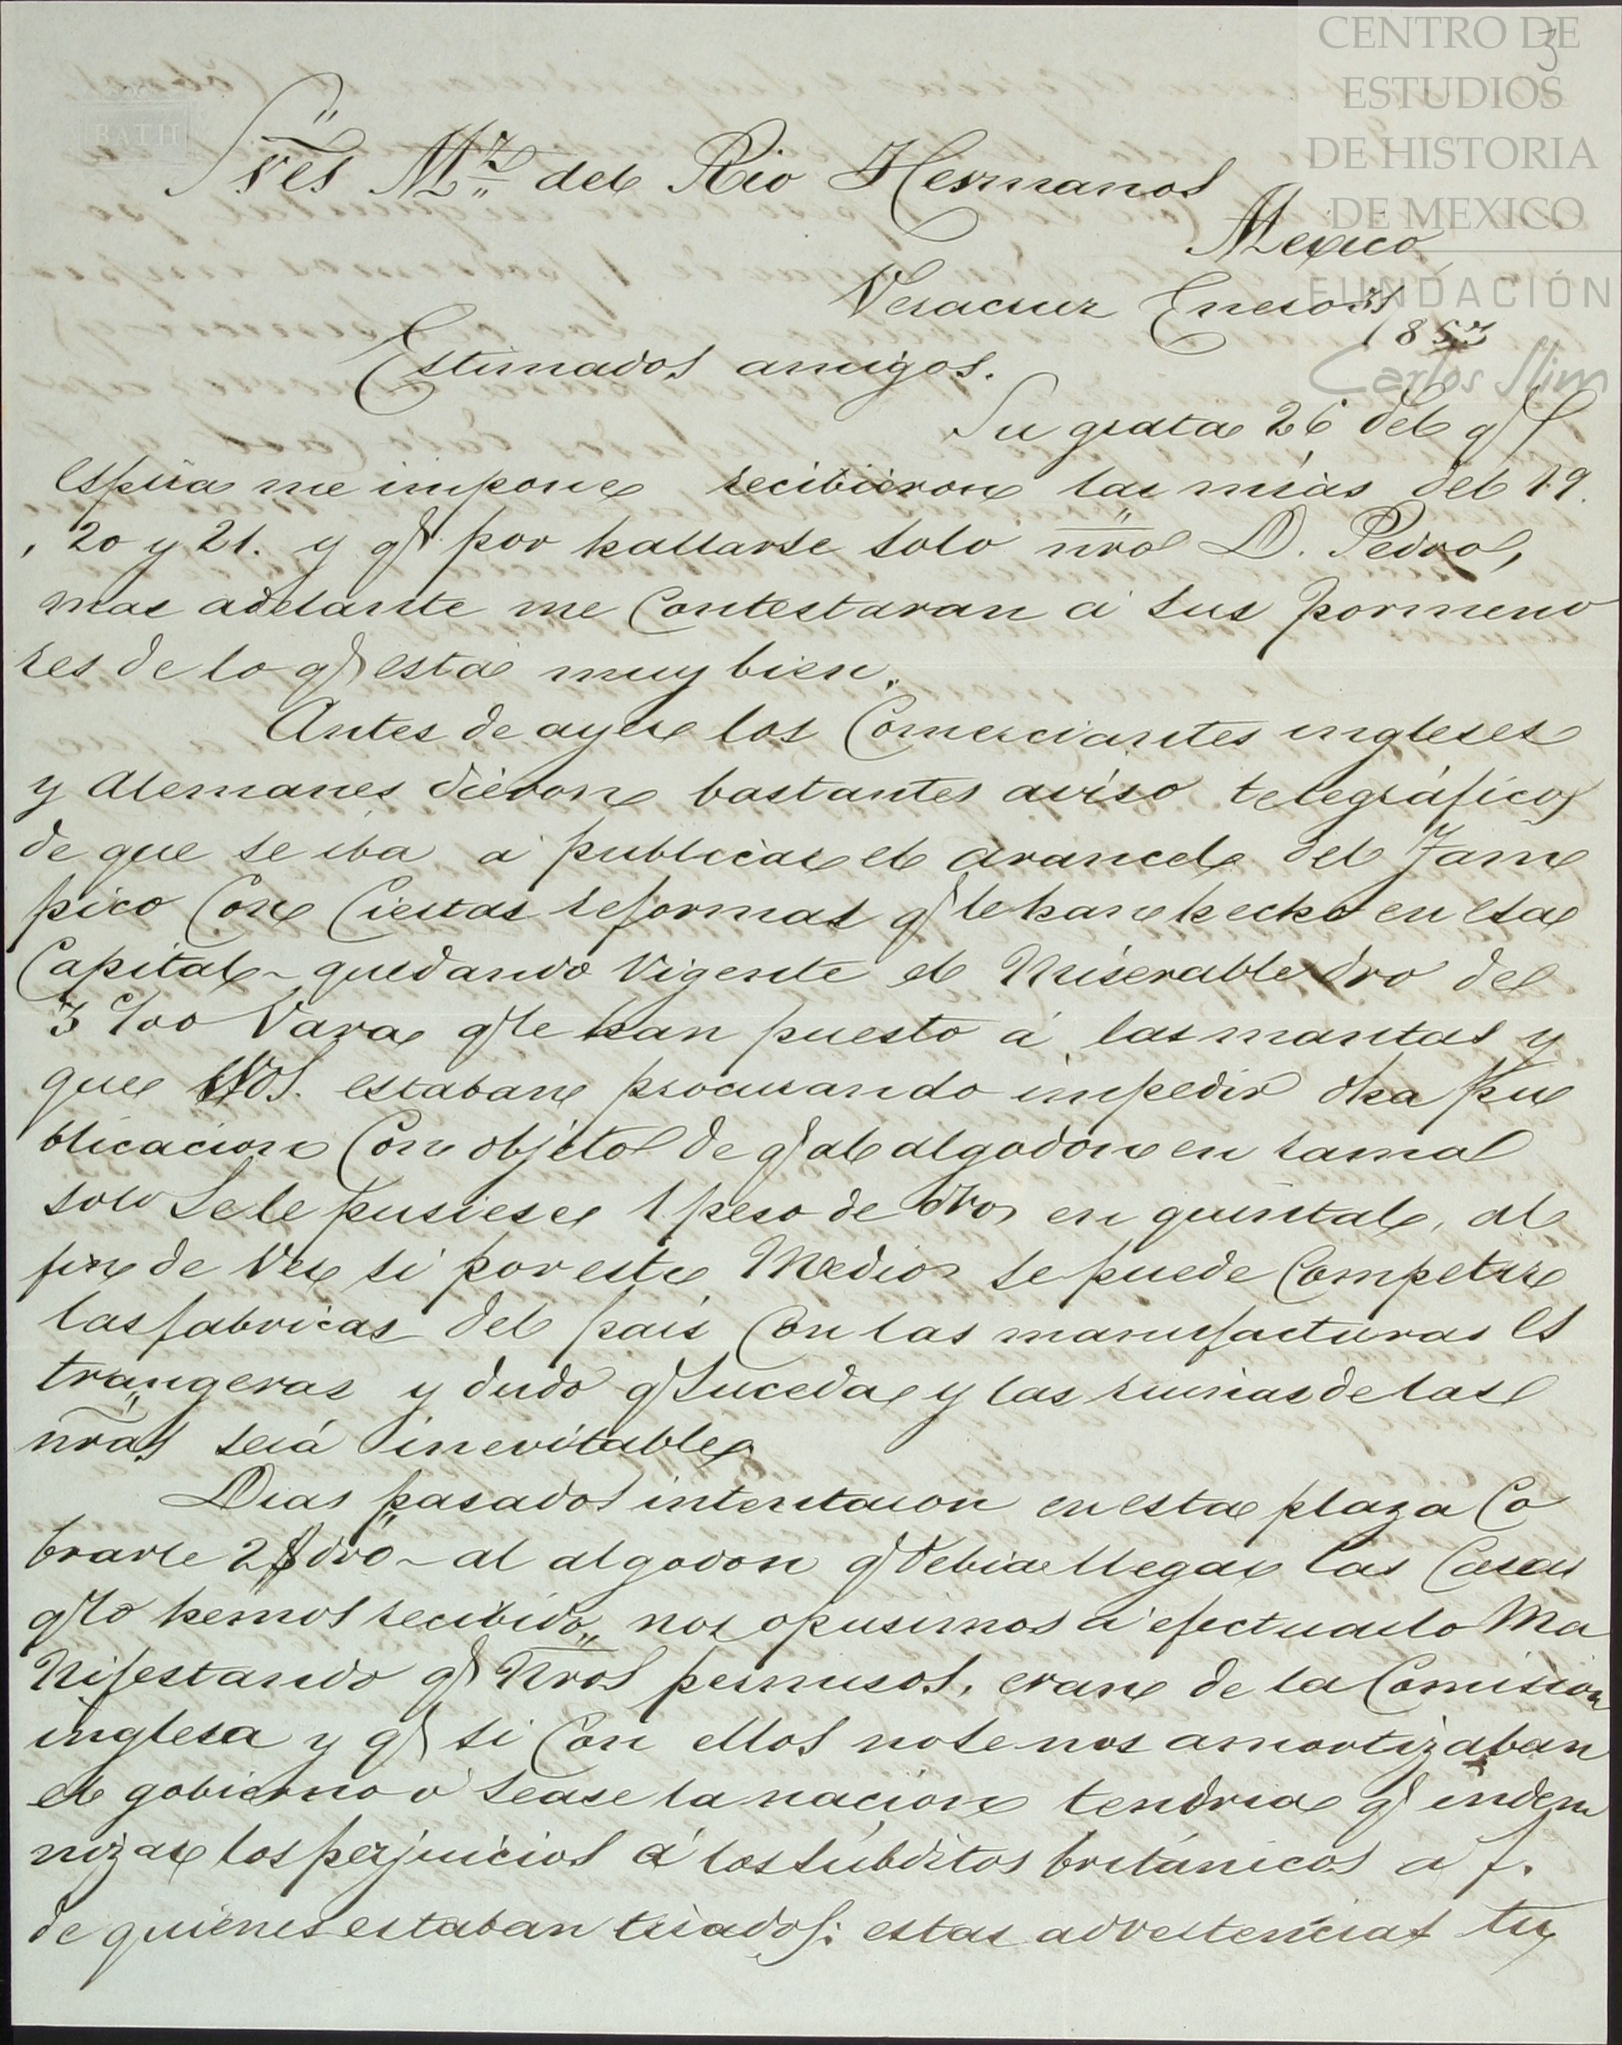 CENTRO DE
ESTUDIOS
DE HISTORIA
DE MEXICO
FUNDACIÓN
Carlos Slim
3
BATH
Sres Mz. del Rio Hermanos
Mexico
Veracruz Enero
1853
Estimados amigos.
Su grata 26 del q
espira me impone recibieron las mias del 19
, 20 y 21. y q por hallarse solo nro D. Pedro,
mas adelante me Contestaran á sus pormeno
res de lo q está muy bien.
Antes de ayer los Comerciantes ingleses
y Alemanes dieron bastantes aviso telegráficos
de que se iba á publicar el arancel del Tam
pico Con Ciertas reformas q le han hecho en esa
Capital - quedando Vigente el Miserable dro de
3 c/oo Vara q le han puesto á las mantas y
que VdS. estaban procurando impedir dha pu
blicacion Con objeto de q al algodon en rama
solo se le pusiese 1 peso de dros en quintal, al
fin de Ver si por este Medio se puede Competir
las fabricas del pais Con las manufacturas es
trangeras y dudo q suceda y las ruinas de las
nras será inevitable
Dias pasados intentaron en esta plaza Co
brarle 2$ dro - al algodon q debia llegar las Casas
q lo hemos recibido, nos opusimos á efectuarlo Ma
nifestando q Nros permisos, eran de la Comision
inglesa y q si Con ellos no se nos amortizaban
el gobierno ó sease la nacion tendria q indem
nizar los perjuicios á los súbditos británicos a f.
de quienes estaban tirados: estas advertencias tu